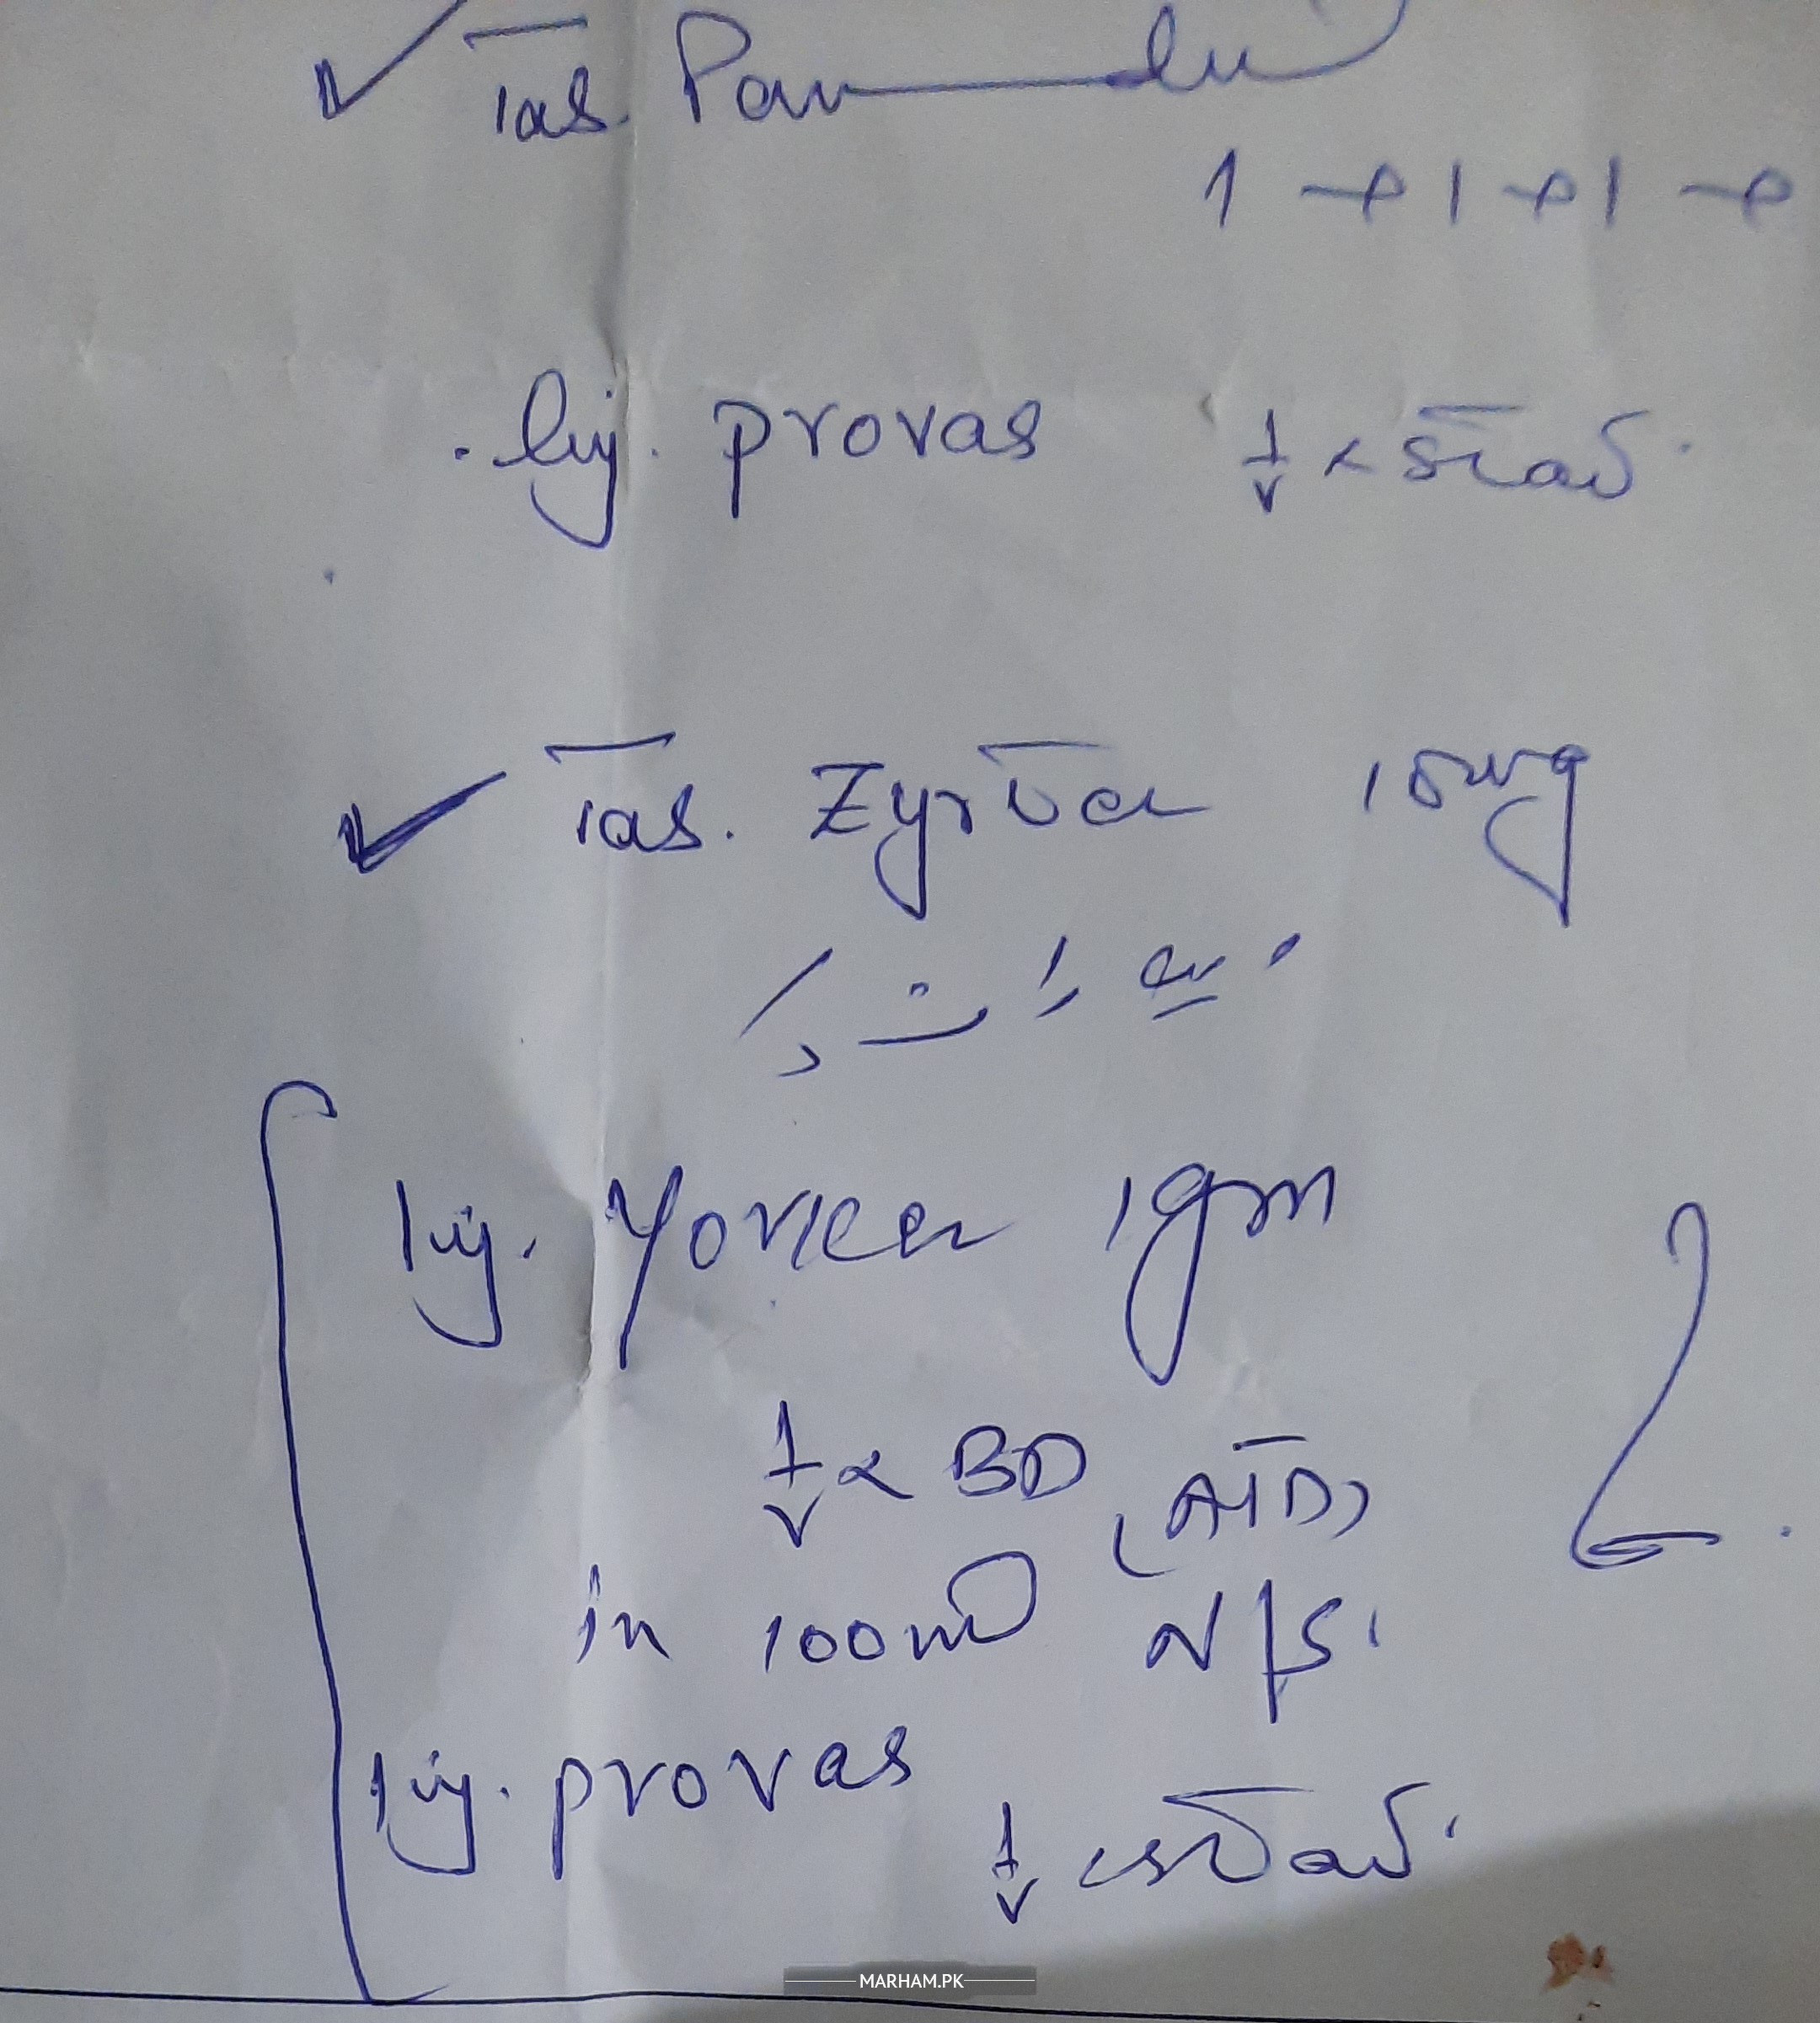 Tab. Pan
1 → 1 → 1 →
Inj. provas 1/v x stat
Tab. Zyrtec 10mg
رات
Inj. Yorker 1gm
1/v x BD (ATD)
in 100ml N/S.
Inj. provas
1/v stat
MARHAM.PK